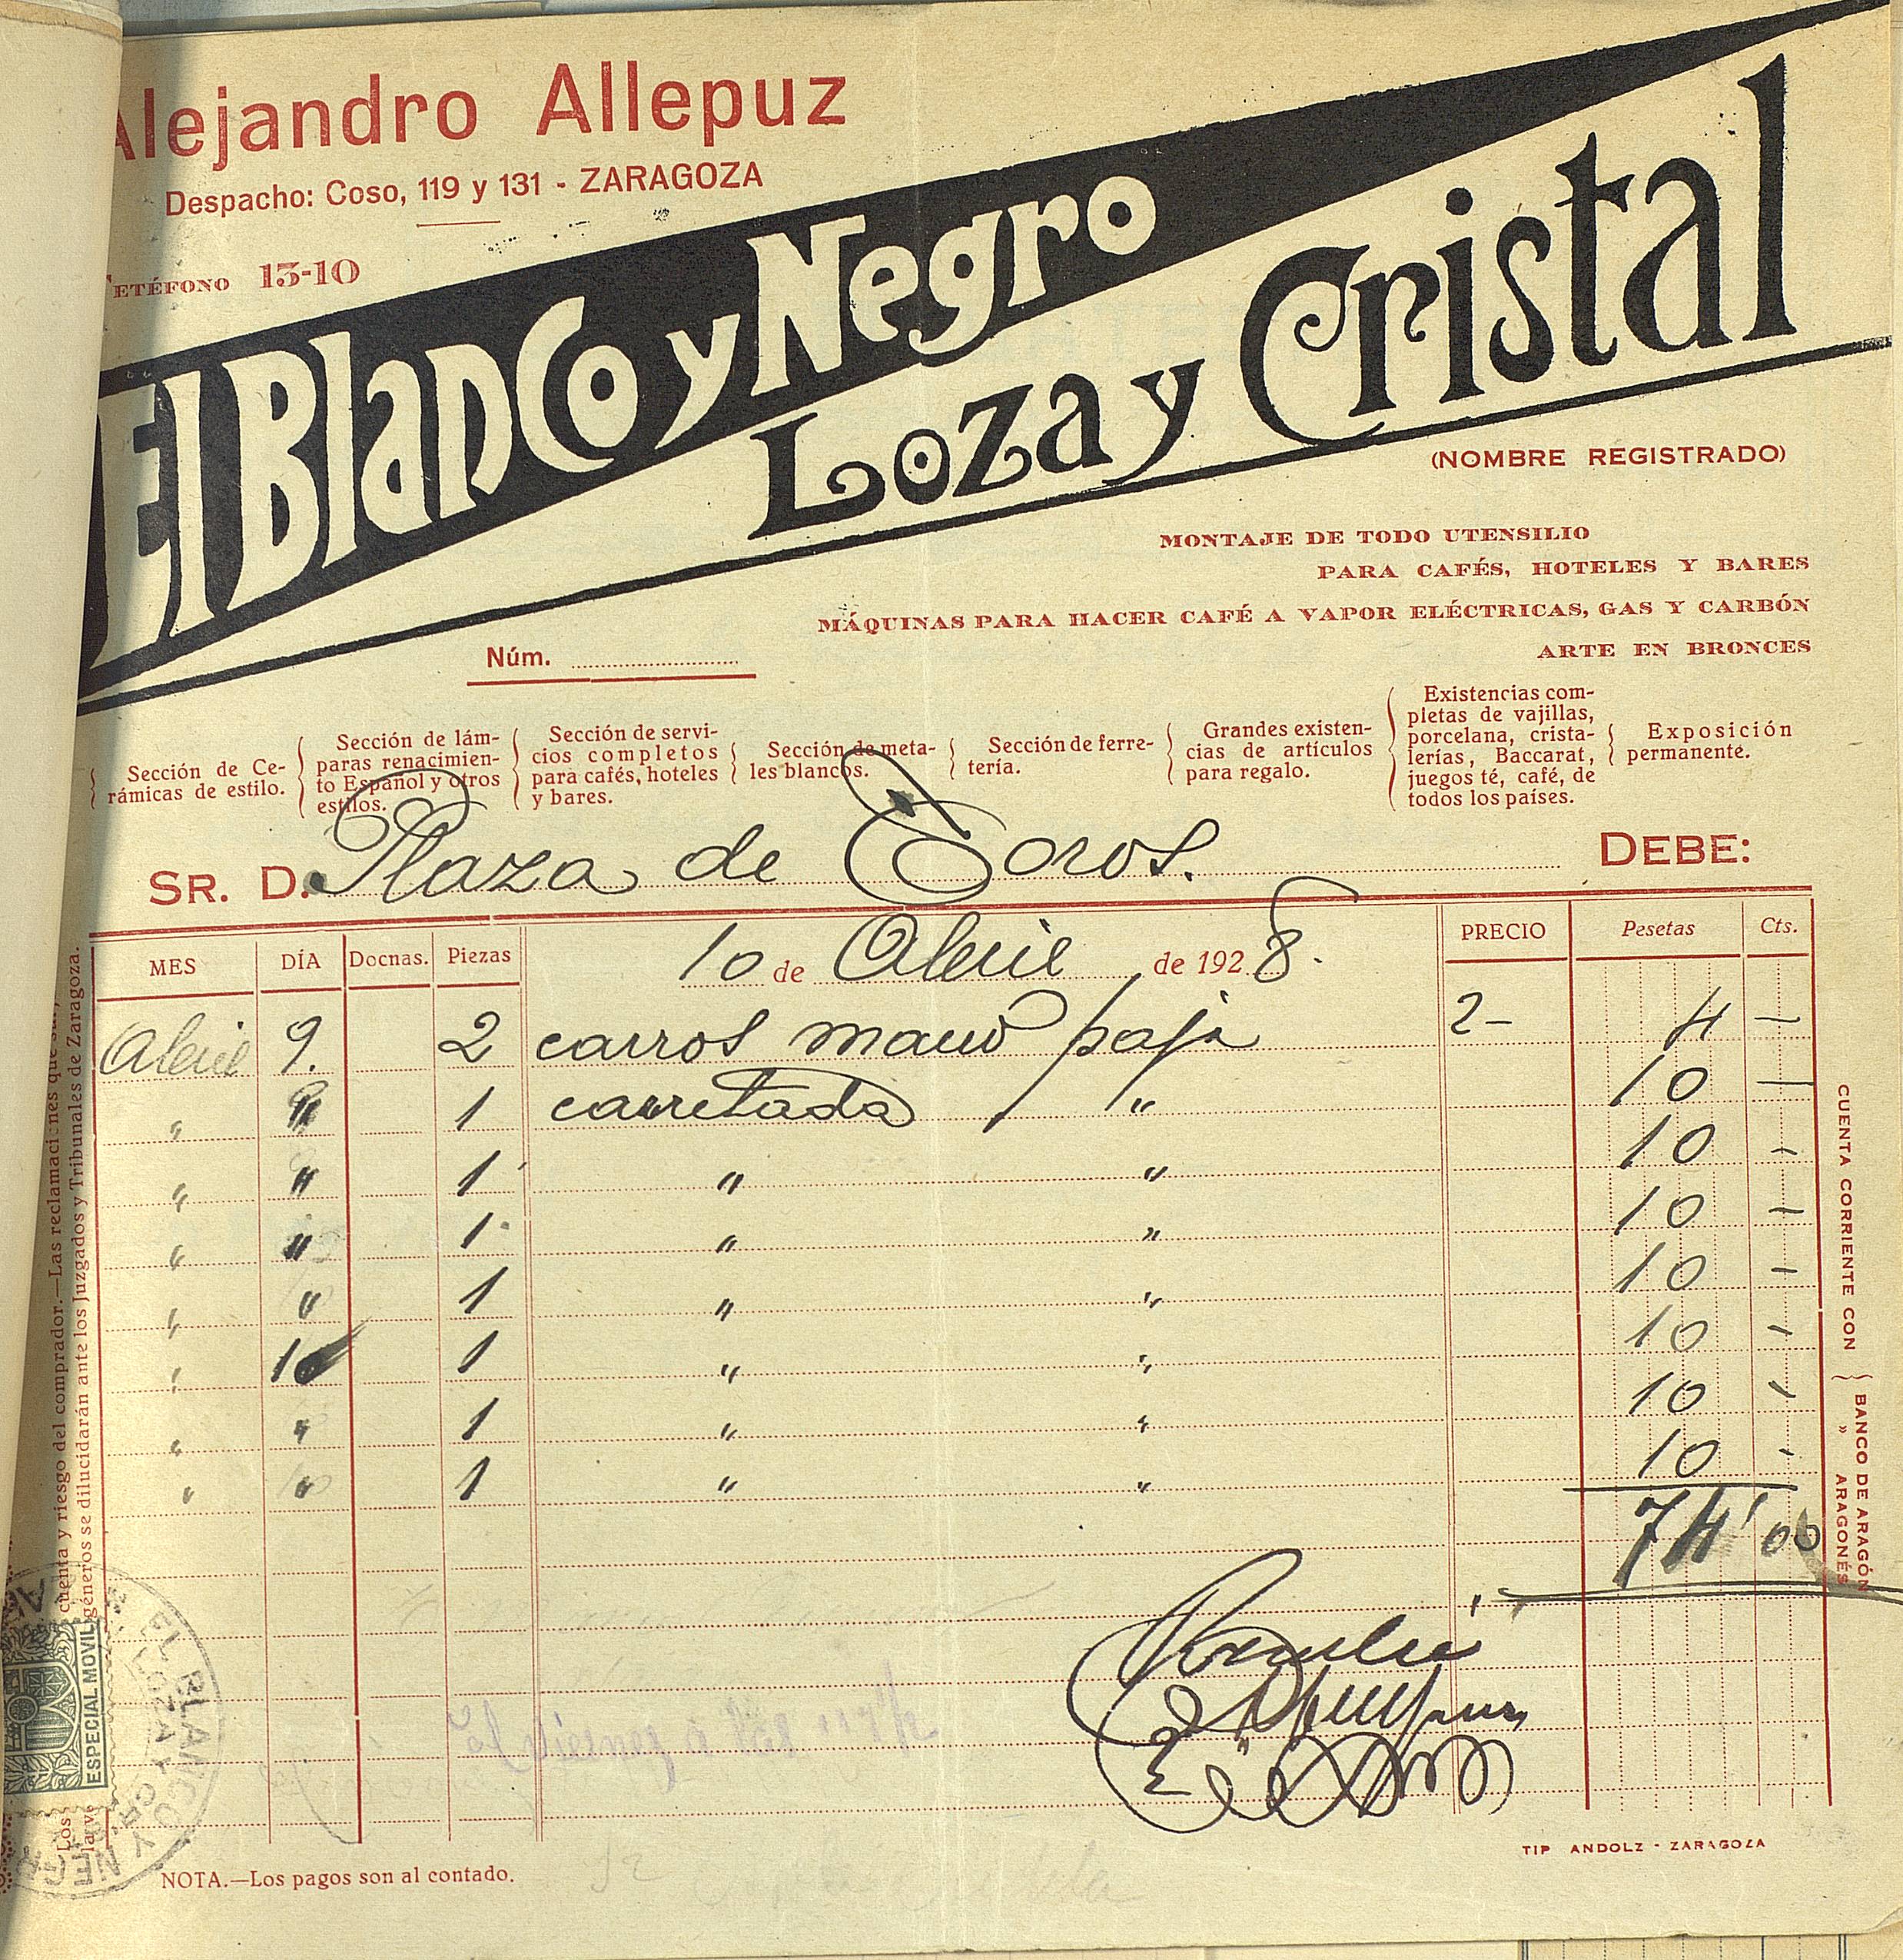 Alejandro Allepuz
Despacho: Coso, 119 y 131 - ZARAGOZA
TETÉFONO 13-10
El Blanco y Negro
Loza y Cristal
(NOMBRE REGISTRADO)
MONTAJE DE TODO UTENSILIO
PARA CAFÉS, HOTELES Y BARES
MÁQUINAS PARA HACER CAFÉ A VAPOR ELÉCTRICAS, GAS Y CARBÓN
ARTE EN BRONCES
Núm.
Sección de Ce-
rámicas de estilo.
Sección de lám-
paras renacimien-
to Español y otros
estilos.
Sección de servi-
cios completos
para cafés, hoteles
y bares.
Sección de meta-
les blancos.
Sección de ferre-
tería.
Grandes existen-
cias de artículos
para regalo.
Existencias com-
pletas de vajillas,
porcelana, crista-
lerías, Baccarat,
juegos té, café, de
todos los países.
Exposición
permanente.
SR. D. Plaza de Toros. DEBE:
MES DÍA Docnas. Piezas 10 de Abril de 1928. PRECIO Pesetas Cts.
Abril 9. 2 carros mano paja 2- 4 —
" " 1 carretada " 10 —
" " 1 " " 10 -
" " 1 " " 10 -
" " 1 " " 10 -
" 10 1 " " 10 -
" " 1 " " 10 -
" " 1 " " 10 -
74'00
Recibí
CUENTA CORRIENTE CON { BANCO DE ARAGÓN
» ARAGONÉS
cuenta y riesgo del comprador.—Las reclamaciones que
géneros se dilucidarán ante los Juzgados y Tribunales de Zaragoza.
ESPECIAL MOVIL
EL BLANCO Y NEGRO
LOZA Y CRISTAL
NOTA.—Los pagos son al contado.
TIP ANDOLZ - ZARAGOZA